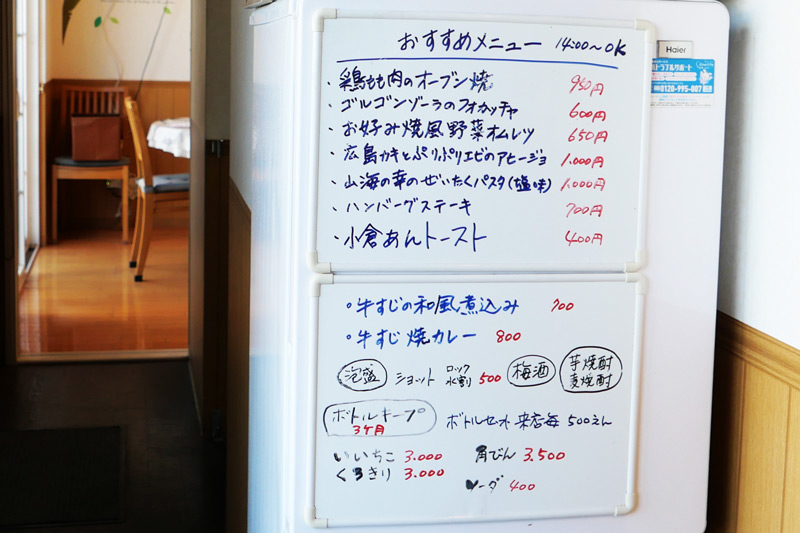 おすすめメニュー 14:00〜OK
・鶏もも肉のオーブン焼 950円
・ゴルゴンゾーラのフォカッチャ 600円
・お好み焼風野菜オムレツ 650円
・広島カキとぷりぷりエビのアヒージョ 1,000円
・山海の幸のぜいたくパスタ(塩味) 1,000円
・ハンバーグステーキ 700円
・小倉あんトースト 400円
・牛すじの和風煮込み 700
・牛すじ焼カレー 800
泡盛 ショット ロック 水割 500 梅酒 芋焼酎 麦焼酎
ボトルキープ 3ヶ月 ボトルセット 来店毎 500えん
いいちこ 3.000 角びん 3.500
くろきり 3.000
ソーダ 400
Haier
トラブルサポート
0120-995-007